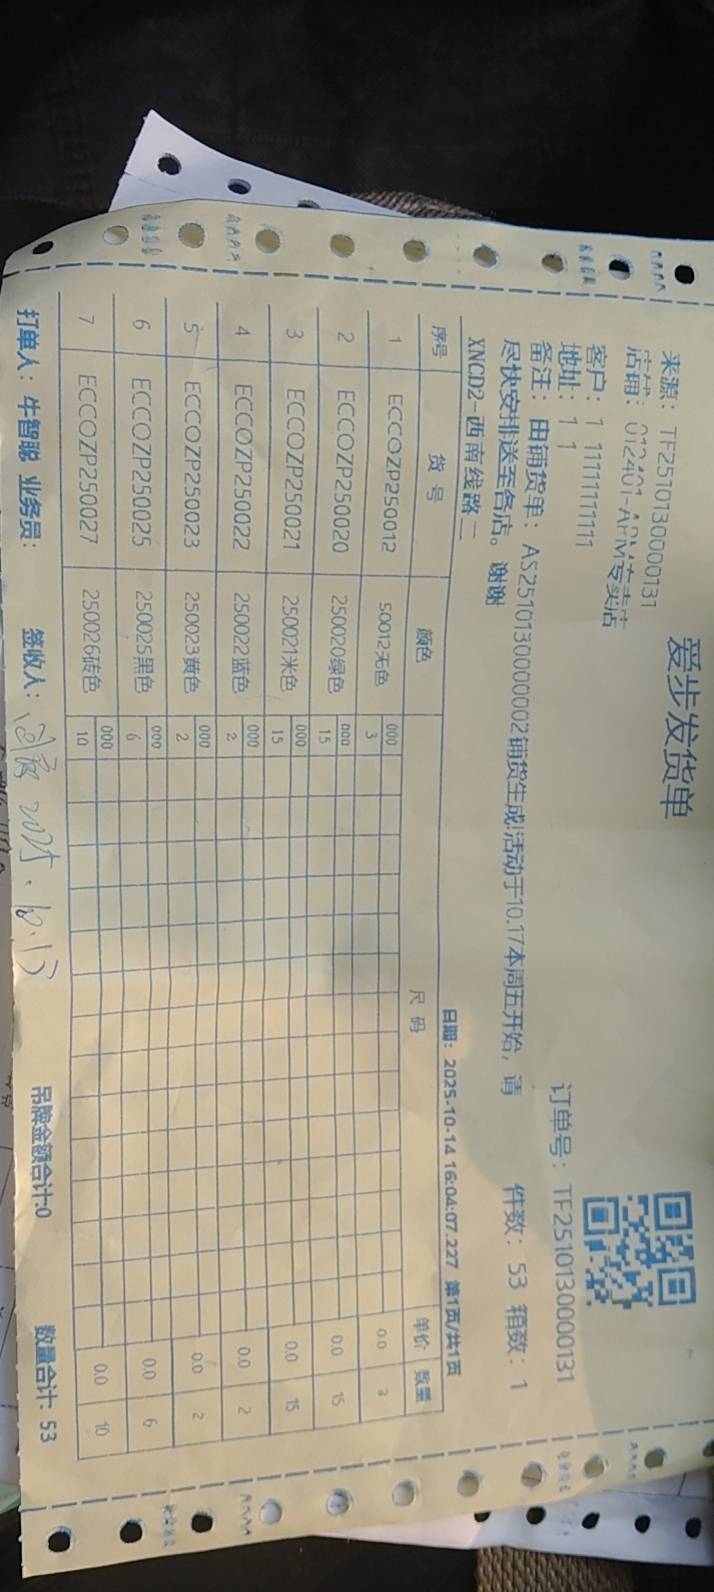 爱步发货单
来源：TF2510130000131
店铺：012401-APM专卖店
客户：1 1111111111
地址：1 1
订单号：TF2510130000131
备注：由铺货单：AS2510130000002铺货生成!活动于10.17本周五开始，请
尽快安排送至各店。谢谢
件数：53 箱数：1
XNCD2-西南线路二
日期：2025-10-14 16:04:07.227 第1页/共1页
序号 货号 颜色 尺码 单价 数量
1 ECCOZP250012 50012无色 000 3 0.0 3
2 ECCOZP250020 250020绿色 000 15 0.0 15
3 ECCOZP250021 250021米色 000 15 0.0 15
4 ECCOZP250022 250022蓝色 000 2 0.0 2
5 ECCOZP250023 250023黄色 000 2 0.0 2
6 ECCOZP250025 250025黑色 000 6 0.0 6
7 ECCOZP250027 250026砖色 000 10 0.0 10
打单人：牛智聪 业务员： 签收人： 2025.10.15 吊牌金额合计:0 数量合计: 53